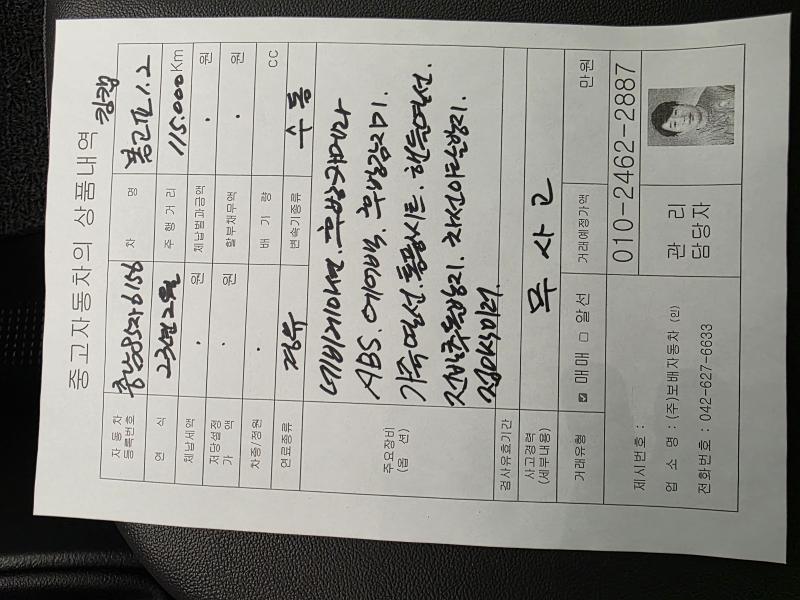 중고자동차의 상품내역
킹캡
자동차 등록번호 충남85자6156 차 명 봉고Ⅲ 1.2
연 식 23년 2월 주행거리 115.000Km
체납세액 . 원 체납범과금액 . 원
저당설정 가액 . 원 할부채무액 . 원
차종/정원 . 배 기 량 cc
연료종류 경유 변속기종류 수동
주요장비 (옵 션)
네비게이션. 후방카메라
ABS. 에어백. 후방감지기.
가죽열선.통풍시트. 핸들열선.
전방추돌방지. 차선이탈방지.
접이식미러.
검사유효기간
사고경력 (세부내용) 무 사 고
거래유형 ☑ 매매 □ 알선 거래예정가액 만원
제시번호 :
업 소 명 : (주)보배자동차 (인)
전화번호 : 042-627-6633
관 리 담당자
010-2462-2887